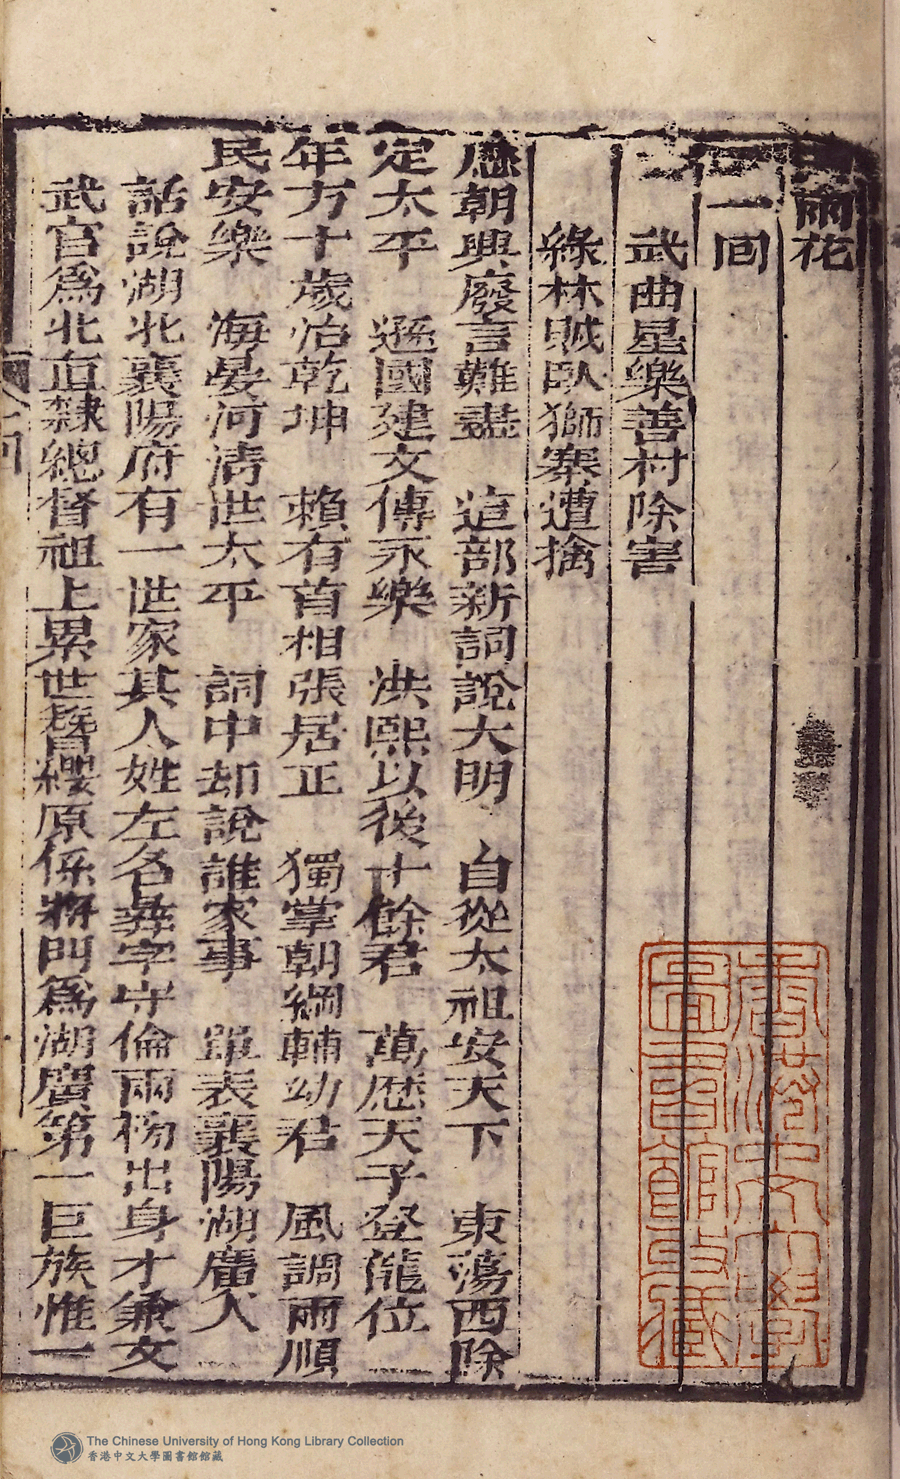 雨花
一回
武曲星樂善村除害
綠林賊臥獅寨遭擒
歷朝興廢言難盡 這部新詞說大明 自從太祖安天下 東蕩西除
定太平 遜國建文傳永樂 洪熙以後十餘君 萬歷天子登龍位 一
年方十歲治乾坤 賴有首相張居正 獨掌朝綱輔幼君 風調雨順
民安樂 海晏河清世太平 詞中却說誰家事 單表襄陽湖廣人
話說湖北襄陽府有一世家其人姓左名彝字守倫兩榜出身才兼文
武官為北直隸總督祖上累世簪纓原係將門為湖廣第一巨族惟一
香港中文大學
圖書館所藏
The Chinese University of Hong Kong Library Collection
香港中文大學圖書館館藏